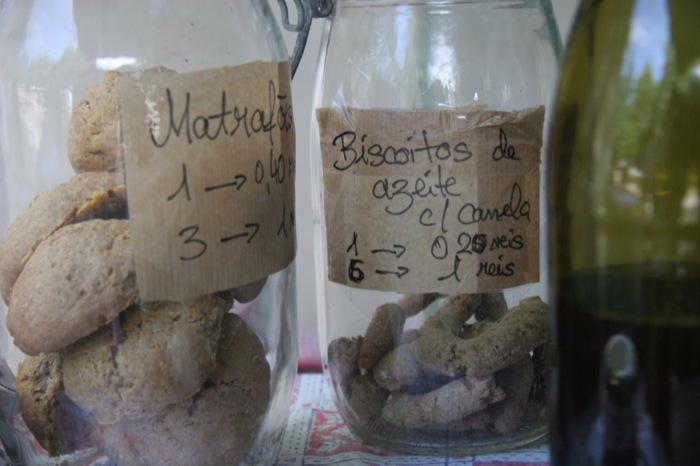 Matrafões
1 → 0,40
3 → 1
Biscoitos de
azeite
c/ canela
1 → 0 25 reis
6 → 1 reis